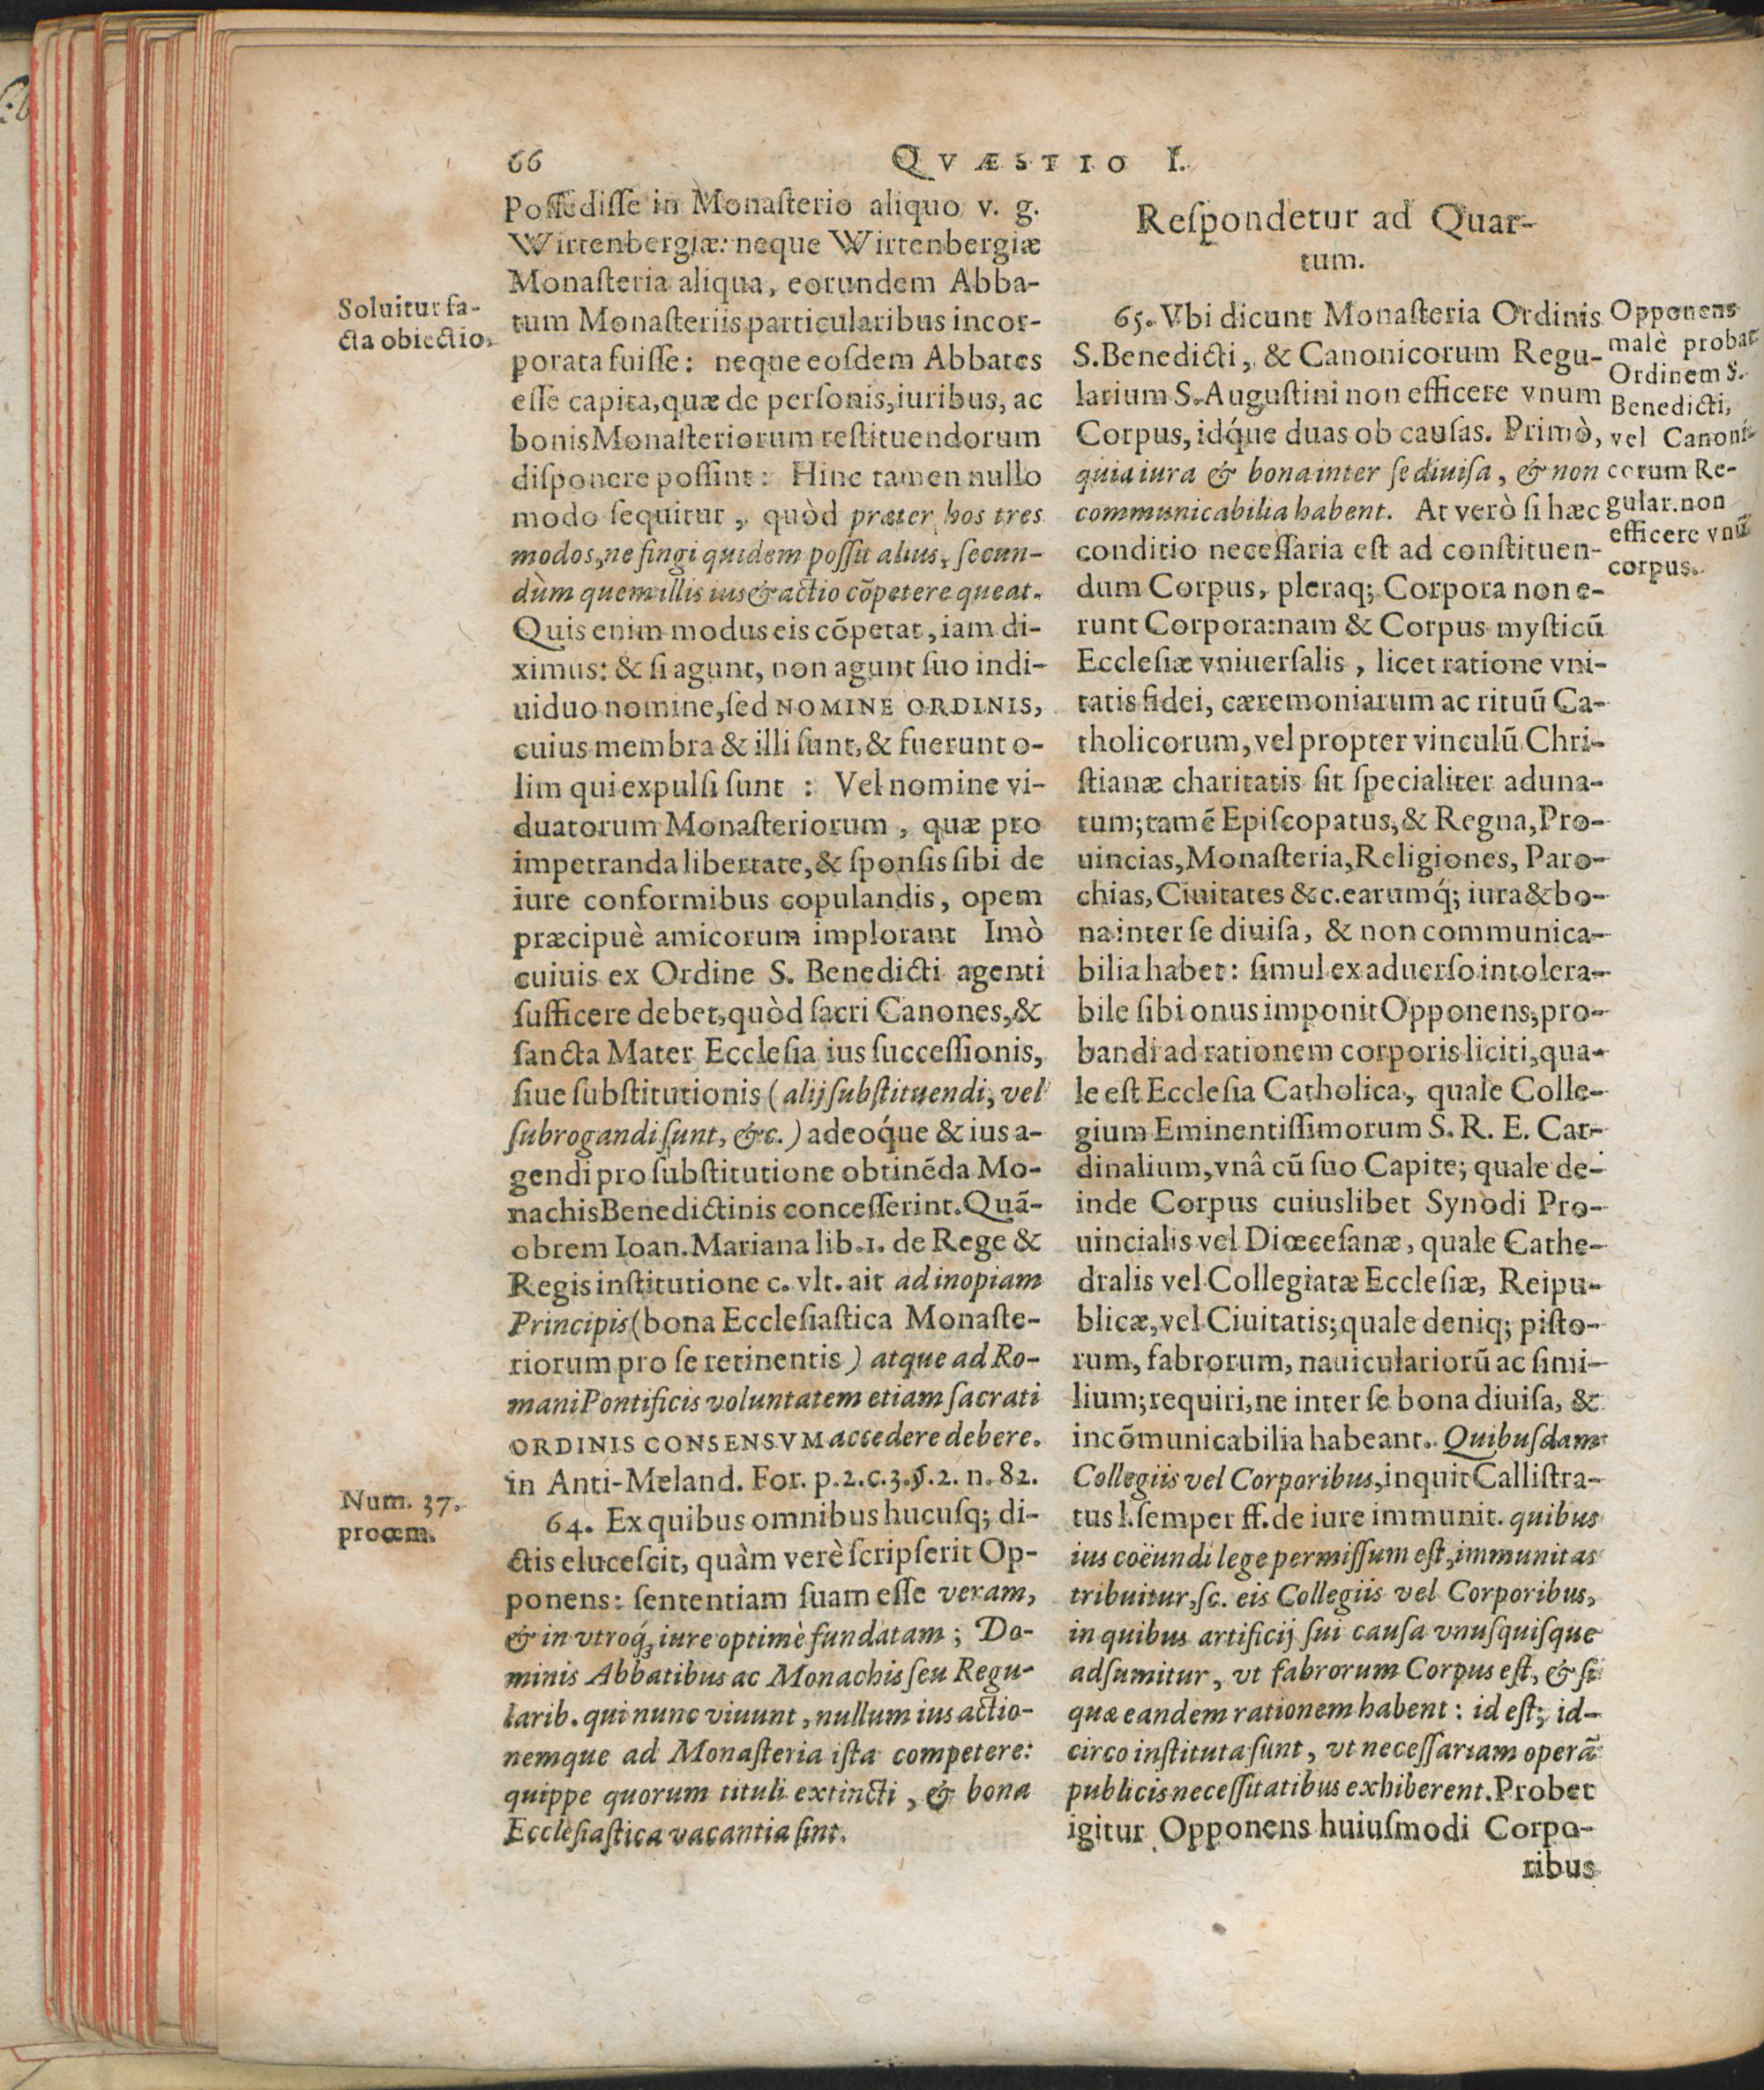 66
QVÆSTIO I.
Poſſediſſe in Monaſterio aliquo v. g.
Wirtenbergiæ: neque Wirtenbergiæ
Monaſteria aliqua, eorundem Abba-
tum Monaſteriis particularibus incor-
porata fuiſſe: neque eoſdem Abbates
eſſe capita, quæ de perſonis, iuribus, ac
bonis Monaſteriorum reſtituendorum
diſponere poſſint: Hinc tamen nullo
modo ſequitur, quòd præter hos tres
modos, ne fingi quidem poſſit alius, ſecun-
dùm quem illis ius & actio cõpetere queat.
Quis enim modus eis cõpetat, iam di-
ximus: & ſi agunt, non agunt ſuo indi-
uiduo nomine, ſed NOMINE ORDINIS,
cuius membra & illi ſunt, & fuerunt o-
lim qui expulſi ſunt : Vel nomine vi-
duatorum Monaſteriorum, quæ pro
impetranda libertate, & ſponſis ſibi de
iure conformibus copulandis, opem
præcipuè amicorum implorant Imò
cuiuis ex Ordine S. Benedicti agenti
ſufficere debet, quòd ſacri Canones, &
ſancta Mater Eccleſia ius ſucceſſionis,
ſiue ſubſtitutionis (alij ſubſtituendi, vel
ſubrogandi ſunt, &c.) adeóque & ius a-
gendi pro ſubſtitutione obtinẽda Mo-
nachis Benedictinis conceſſerint. Quã-
obrem Ioan. Mariana lib. 1. de Rege &
Regis inſtitutione c. vlt. ait ad inopiam
Principis (bona Eccleſiaſtica Monaſte-
riorum pro ſe retinentis) atque ad Ro-
mani Pontificis voluntatem etiam ſacrati
ORDINIS CONSENSVM accedere debere.
in Anti-Meland. For. p. 2. c. 3. §. 2. n. 82.
64. Ex quibus omnibus hucuſq; di-
ctis eluceſcit, quàm verè ſcripſerit Op-
ponens: ſententiam ſuam eſſe veram,
& in vtroq́; iure optimè fundatam; Do-
minis Abbatibus ac Monachis ſeu Regu-
larib. qui nunc viuunt, nullum ius actio-
nemque ad Monaſteria iſta competere:
quippe quorum tituli extincti, & bona
Eccleſiaſtica vacantia ſint.
Soluitur fa-
cta obiectio.
Num. 37.
proœm.
Reſpondetur ad Quar-
tum.
65. Vbi dicunt Monaſteria Ordinis
S. Benedicti, & Canonicorum Regu-
larium S. Auguſtini non efficere vnum
Corpus, idq́ue duas ob cauſas. Primò,
quia iura & bona inter ſe diuiſa, & non
communicabilia habent. At verò ſi hæc
conditio neceſſaria eſt ad conſtituen-
dum Corpus, pleraq; Corpora non e-
runt Corpora: nam & Corpus myſticũ
Eccleſiæ vniuerſalis, licet ratione vni-
tatis fidei, cæremoniarum ac rituũ Ca-
tholicorum, vel propter vinculũ Chri-
ſtianæ charitatis ſit ſpecialiter aduna-
tum; tamẽ Epiſcopatus, & Regna, Pro-
uincias, Monaſteria, Religiones, Paro-
chias, Ciuitates &c. earumq́; iura & bo-
na inter ſe diuiſa, & non communica-
bilia habet: ſimul ex aduerſo intolera-
bile ſibi onus imponit Opponens, pro-
bandi ad rationem corporis liciti, qua-
le eſt Eccleſia Catholica, quale Colle-
gium Eminentiſſimorum S. R. E. Car-
dinalium, vnâ cũ ſuo Capite; quale de-
inde Corpus cuiuslibet Synodi Pro-
uincialis vel Diœceſanæ, quale Cathe-
dralis vel Collegiatæ Eccleſiæ, Reipu-
blicæ, vel Ciuitatis; quale deniq; piſto-
rum, fabrorum, nauiculariorũ ac ſimi-
lium; requiri, ne inter ſe bona diuiſa, &
incõmunicabilia habeant. Quibuſdam
Collegiis vel Corporibus, inquit Calliſtra-
tus l. ſemper ff. de iure immunit. quibus
ius coëundi lege permiſſum eſt, immunitas
tribuitur, ſc. eis Collegiis vel Corporibus,
in quibus artificij ſui cauſa vnuſquiſque
adſumitur, vt fabrorum Corpus eſt, & ſi
quæ eandem rationem habent: id eſt, id-
circo inſtituta ſunt, vt neceſſariam operã
publicis neceſſitatibus exhiberent. Probet
igitur Opponens huiuſmodi Corpo-
ribus
Opponens
malè probat
Ordinem S.
Benedicti,
vel Canoni-
corum Re-
gular. non
efficere vnũ
corpus.